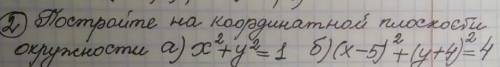 ② Постройте на координатной плоскости
окружности а) x²+y²=1 б) (x-5)²+(y+4)²=4